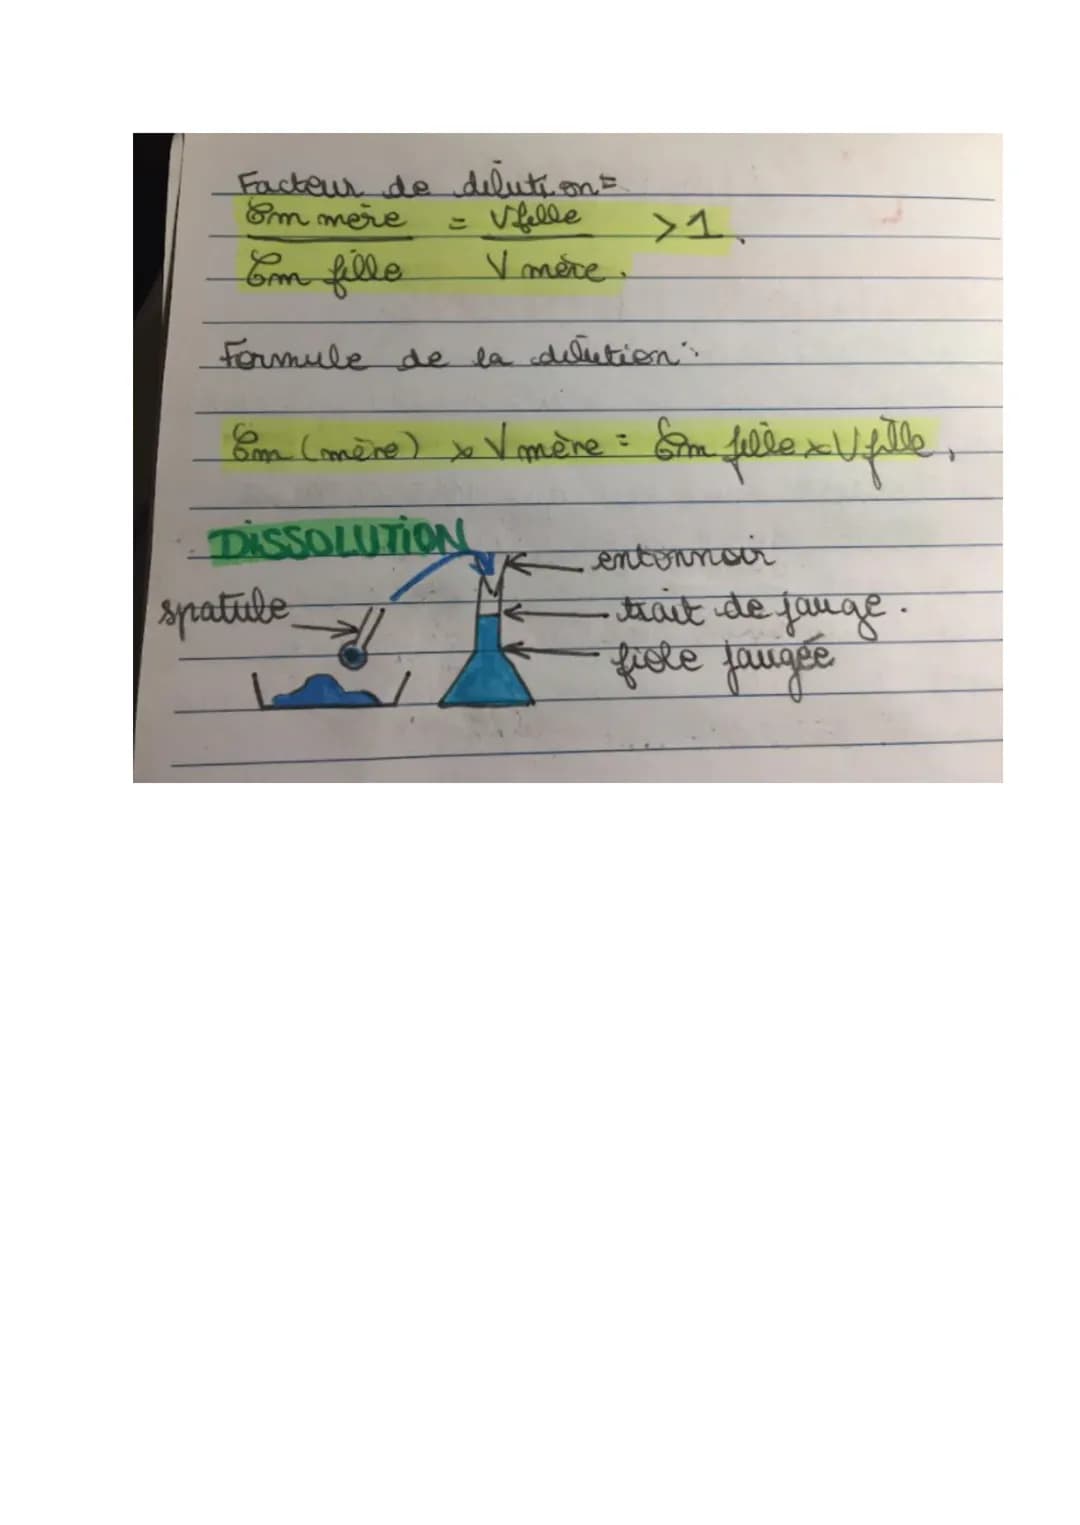 Facteur de dilution=
Cm mère = Vfille >1.
Cm fille V mère.
Formule de la dilution:
Cm (mère) x V mère = Cm fille x V fille.
DISSOLUTION
entonnoir
spatule
trait de jauge.
fiole jaugée